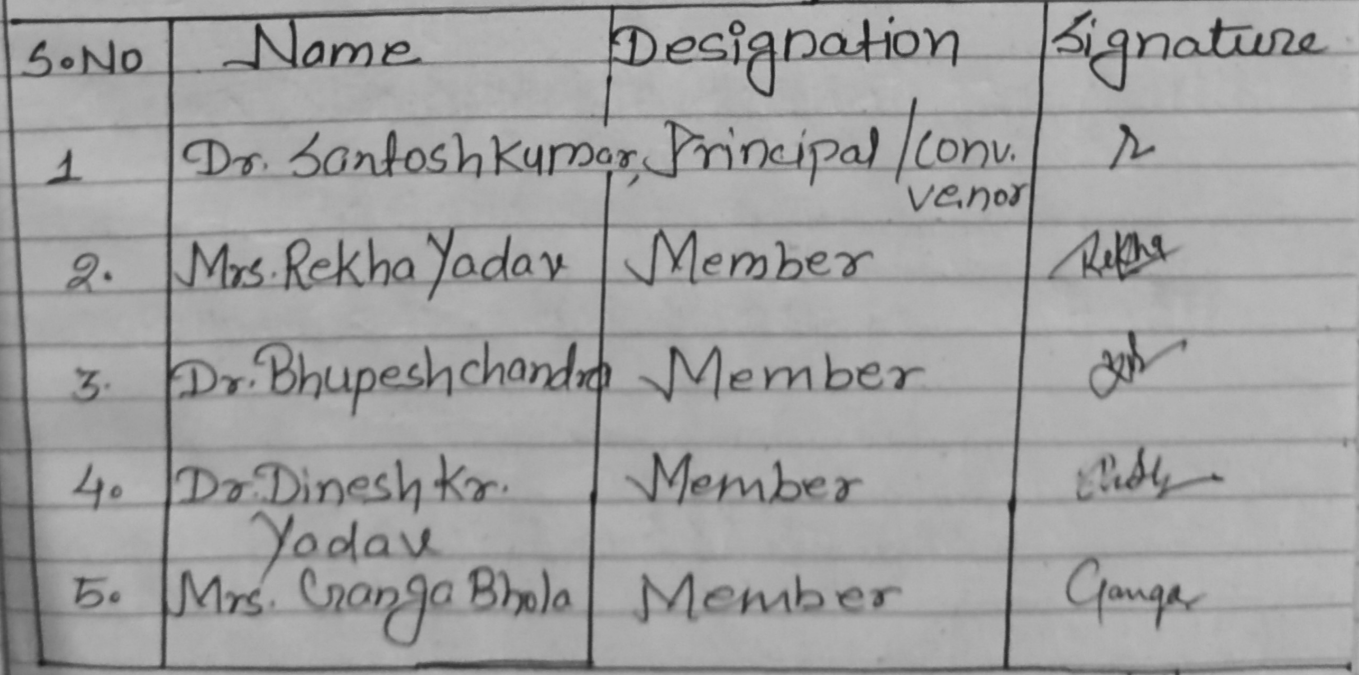 S.No Name Designation Signature
1 Dr. Santosh Kumar, Principal / Conv.
venor
2. Mrs. Rekha Yadav Member Rekha
3. Dr. Bhupesh chandra Member
4. Dr. Dinesh Kr. Member
Yadav
5. Mrs. Ganga Bhola Member Ganga